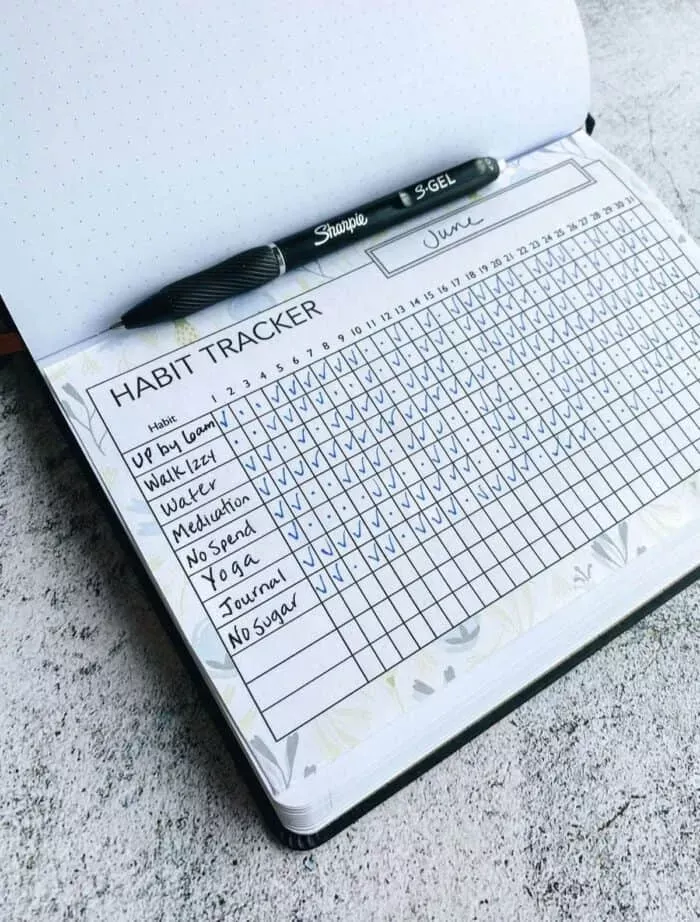 Sharpie S·GEL
June
HABIT TRACKER
Habit 1 2 3 4 5 6 7 8 9 10 11 12 13 14 15 16 17 18 19 20 21 22 23 24 25 26 27 28 29 30 31
UP by 6am
Walk Izzy
Water
Medication
No Spend
Yoga
Journal
No Sugar